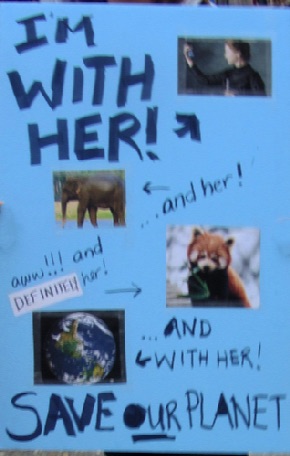 I'M
WITH
HER!
...and her!
aww!!! and
DEFINITELY her!
...AND
WITH HER!
SAVE OUR PLANET